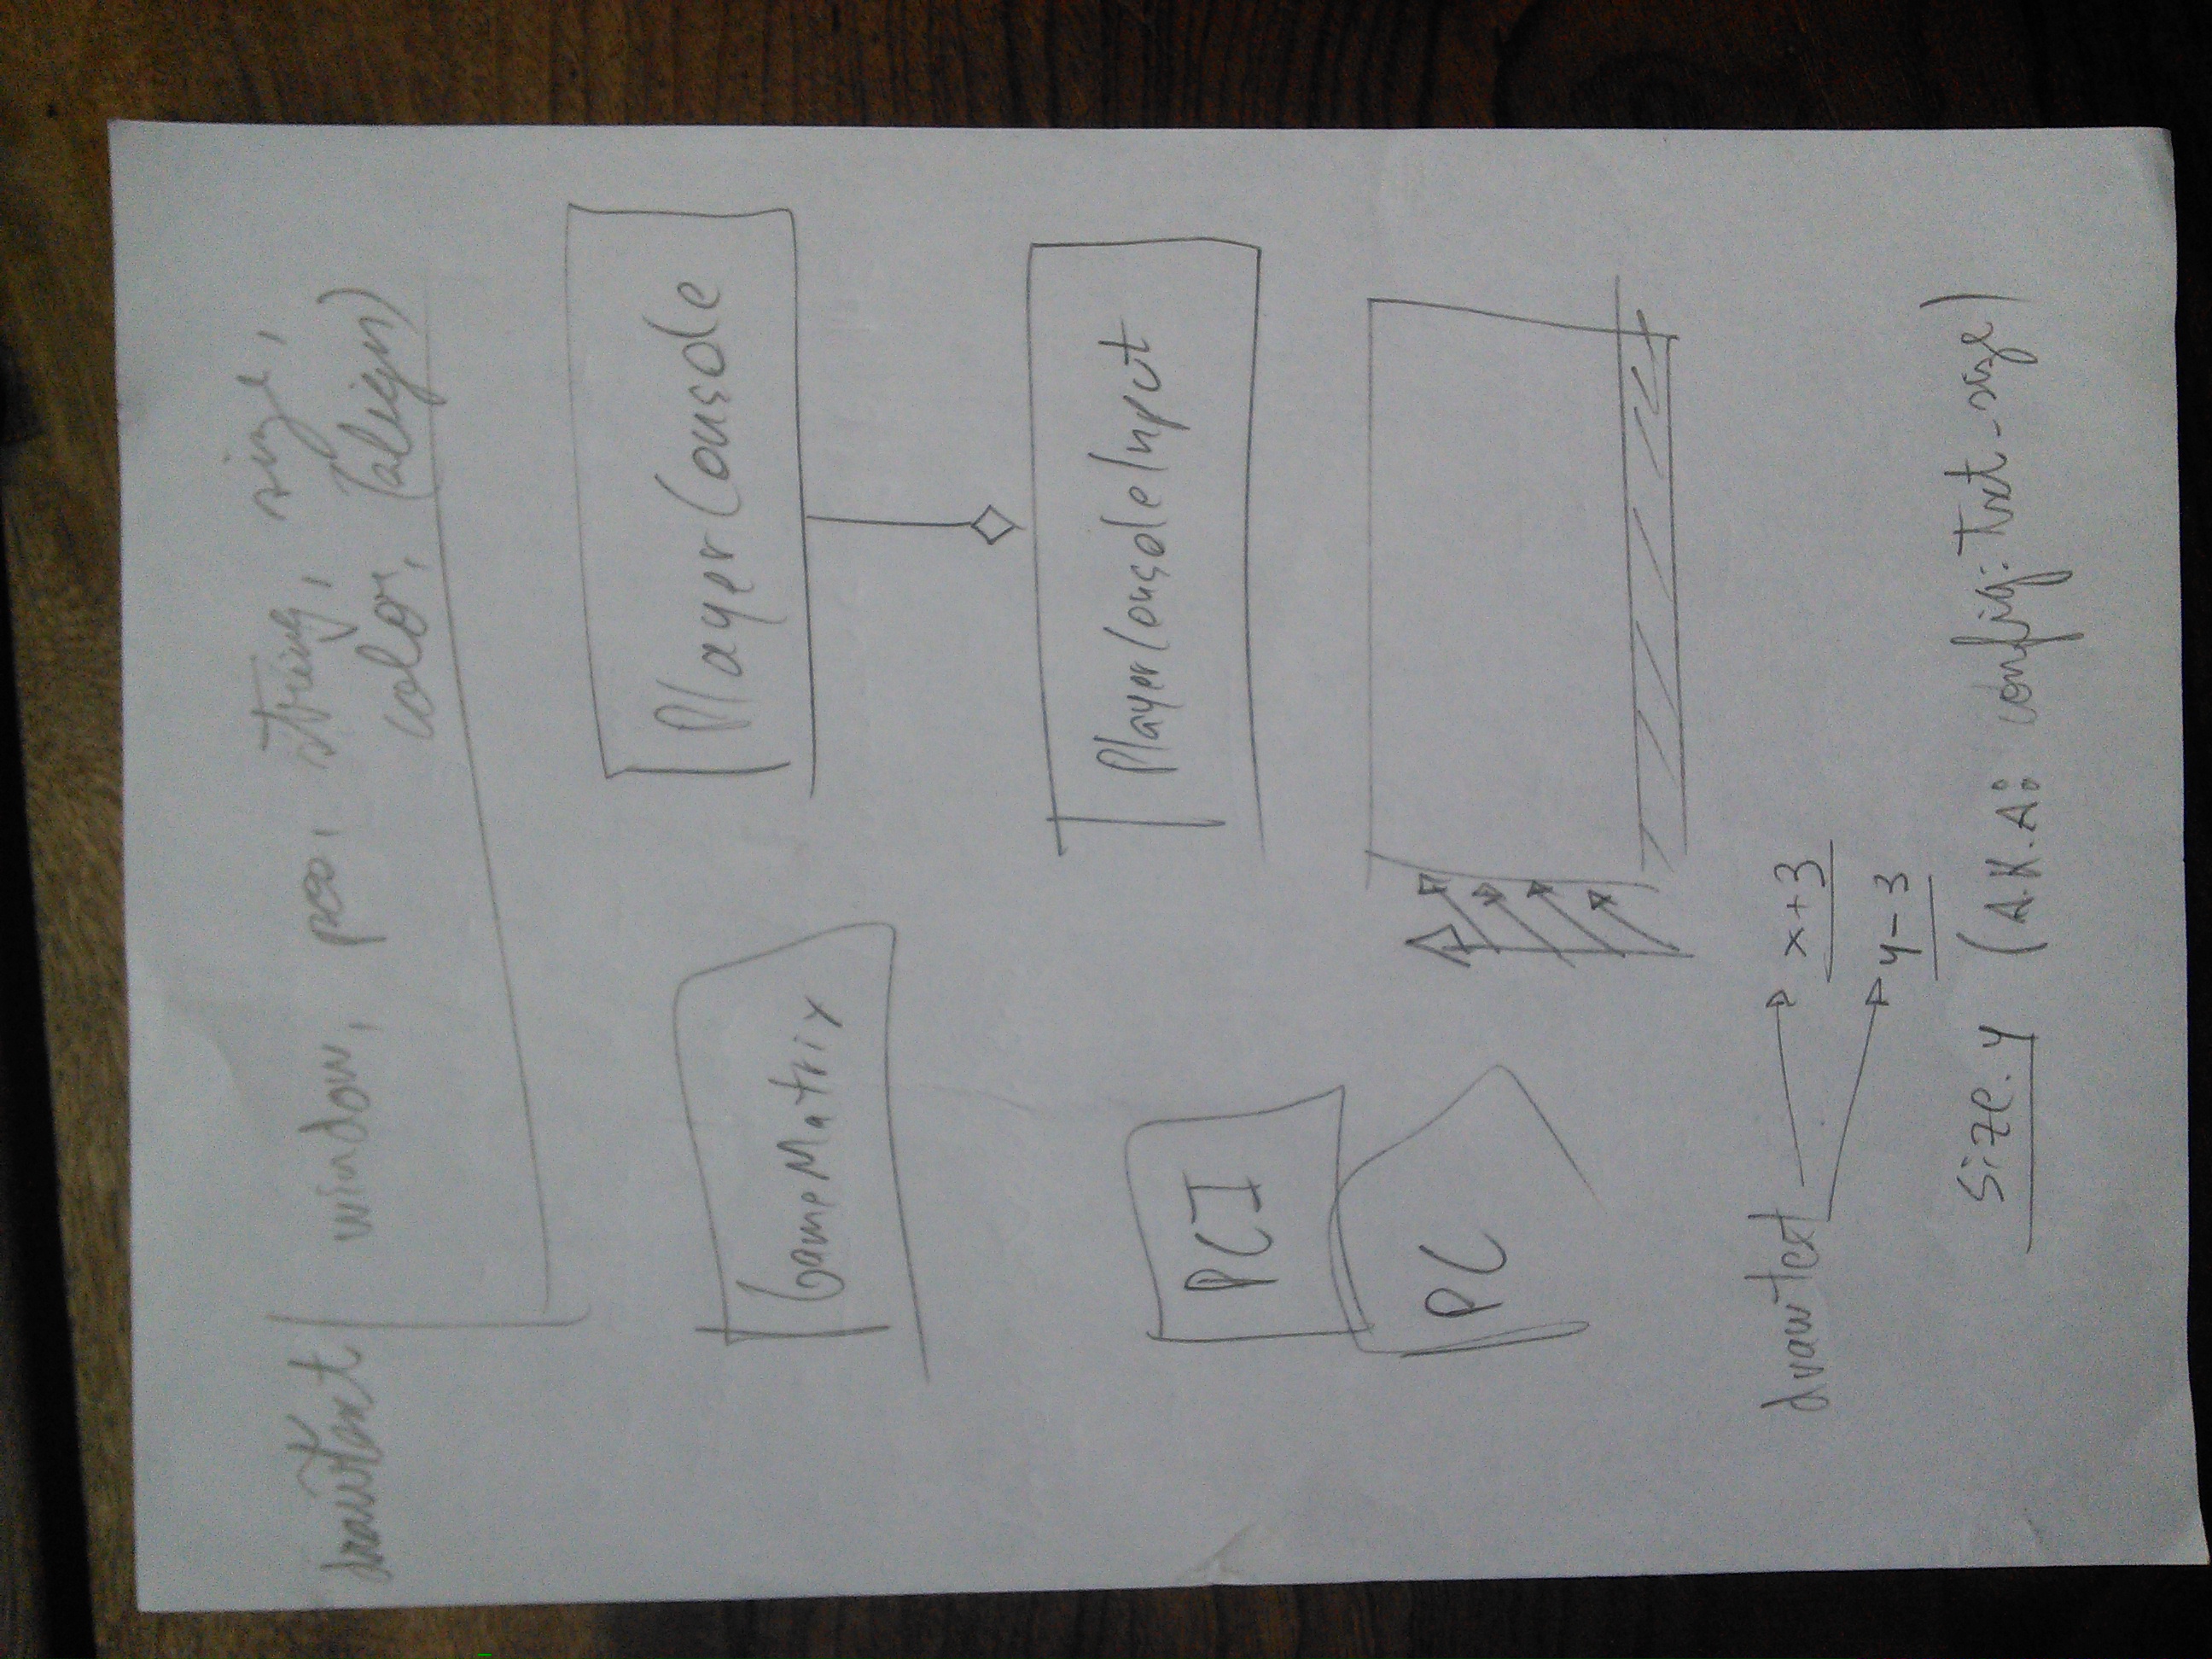 drawText window, pos, string, size,
color, (align)
PlayerConsole
GameMatrix
PlayerConsoleInput
PCI
PC
drawText x+3
y-3
size.y (A.K.A: config:txt-size)